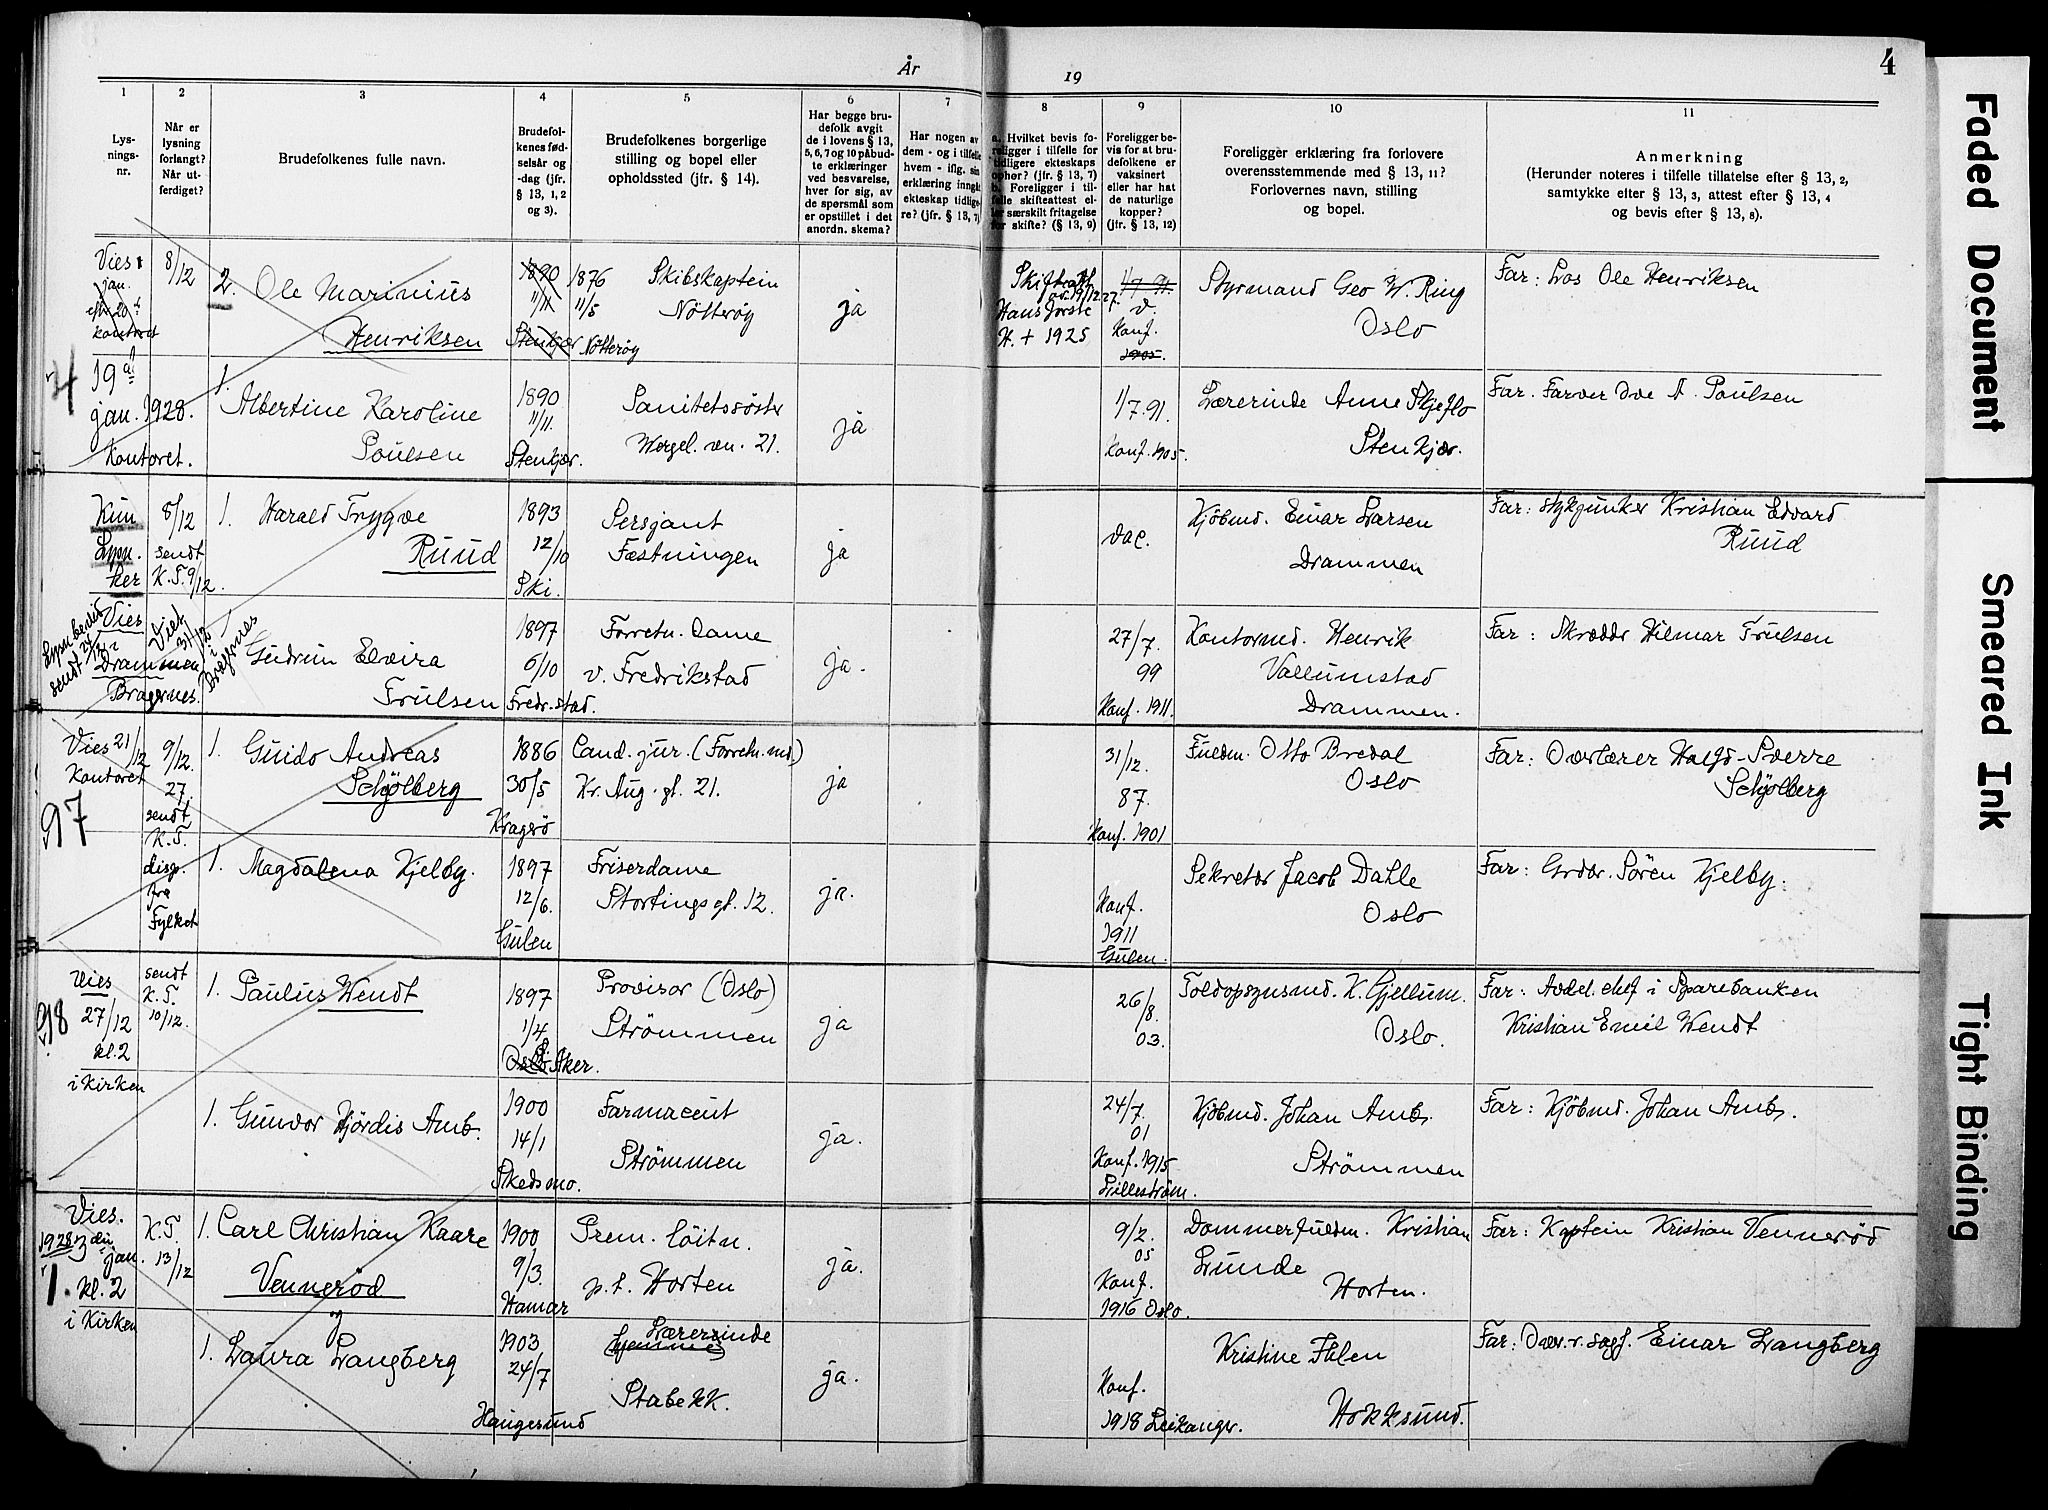 År
19
4
1
Lys-
nings-
nr.
2
Når er
lysning
forlangt?
Når ut-
ferdiget?
3
Brudefolkenes fulle navn.
4
Brudefol-
kenes fød-
selsår og
-dag (jfr.
§ 13, 1, 2
og 3).
5
Brudefolkenes borgerlige
stilling og bopel eller
opholdssted (jfr. § 14).
6
Har begge bru-
defolk avgit
de i lovens § 13,
5, 6, 7 og 10 påbud-
te erklæringer
ved besvarelse,
hver for sig, av
de spørsmål som
er opstillet i det
anordn. skema?
7
Har nogen av
dem - og i tilfelle
hvem - iflg. sin
erklæring inngåt
ekteskap tidlige-
re? (jfr. § 13, 7)
8
a. Hvilket bevis fo-
religger i tilfelle for
tidligere ekteskaps
ophør? (jfr. § 13, 7)
b. Foreligger i til-
felle skifteattest el-
ler særskilt fritagelse
for skifte? (§ 13, 9)
9
Foreligger be-
vis for at bru-
defolkene er
vaksinert
eller har hat
de naturlige
kopper?
(jfr. § 13, 12)
10
Foreligger erklæring fra forlovere
overensstemmende med § 13, 11?
Forlovernes navn, stilling
og bopel.
11
Anmerkning
(Herunder noteres i tilfelle tillatelse efter § 13, 2,
samtykke efter § 13, 3, attest efter § 13, 4
og bevis efter § 13, 8).
Vies
jan.
kontoret
8/12
2. Ole Marinius
Henriksen
1890
11/11
Stenkjær
1876
11/5
Nøtterøy
Skibskaptein
Nøtterøy
ja
Skifteatt.
19/12 27.
H. + 1925
v.
Konf.
1905.
Styrmand Geo W. Ring
Oslo
Far: Los Ole Henriksen
4
19
jan. 1928.
Kontoret.
1.
Albertine Karoline
Poulsen
1890
11/11.
Stenkjær.
Sanitetssøster
Wergel. vn. 21.
ja
1/7.91.
Konf. 1905.
Lærerinde Anne Skjeflo
Stenkjær.
Far. Farver Ove A. Poulsen
Kun
Lysn.
ker
8/12
sendt
K.T. 9/12.
1. Harald Trygve
Ruud
1893
12/10
Ski.
Sersjant
Fæstningen
ja
vac.
Kjøbmd. Einar Larsen
Drammen
Far: Stykjunker Kristian Edvard
Ruud
Vies
i
Drammen
Bragernes.
Viet
31/12
i
Bragernes
1
Gudrun Elvira
Frulsen
1897
6/10
Fredr.stad.
Forretn. Dame
v. Fredrikstad
ja.
27/7.
99
Konf. 1911.
Kontormd. Henrik
Vallumstad
Drammen.
Far: Skrædder Hilmar Frulsen
Vies 21/12
Kontoret
97
9/12.
27.
sendt
K.T.
disp.
fra
Fylket
1. Guido Andreas
Schjølberg
1886
30/5
Kragerø
Cand. jur. (Forretn.md.)
Kr. Aug. gt. 21.
ja
31/12.
87.
Konf. 1901
Fuldm. Otto Bredal
Oslo
Far: Overlærer Halfd. Sverre
Schjølberg
1. Magdalena Kjelby.
1897
12/6.
Gulen
Friserdame
Stortings gt. 12.
ja.
Konf.
1911
Gulen.
Sekretær Jacob Dahle
Oslo
Far: Grdbr. Sören Kjelby.
98
Vies
27/12
kl. 2
i Kirken
sendt
K.T.
10/12.
1. Paulus Wendt
1897
1/4
Oslo Aker.
Provisor (Oslo)
Strömmen
ja
26/8.
03.
Toldopsynsmd. K. Gjellum.
Oslo.
Far: Avdel. chef i Sparebanken
Kristian Emil Wendt
1. Gunvor Hjördis Amb.
1900
14/1
Skedsmo.
Farmaceut
Strömmen
ja.
24/7.
01
Konf. 1915
Lilleström.
Kjøbmd. Johan Amb.
Strömmen
Far: Kjøbmd. Johan Amb.
Vies.
1928 3die
jan.
1. kl. 2
i Kirken
K.T.
13/12
1. Carl Christian Kaare
Vennerød
1900
9/3.
Hamar
Prem. løitn.
p.t. Horten
ja.
9/2.
05
Konf.
1916 Oslo.
Dommerfuldm. Kristian
Lunde
Horten.
Far: Kaptein Kristian Vennerød
og
1. Laura Langberg
1903
24/7
Haugesund
Lærerinde
(hjemme)
Stabekk.
ja.
Konf.
1918 Leikanger.
Kristine Ihlen
Hokksund.
Far: Overr. sagf. Einar Langberg
Faded Document
Smeared Ink
Tight Binding